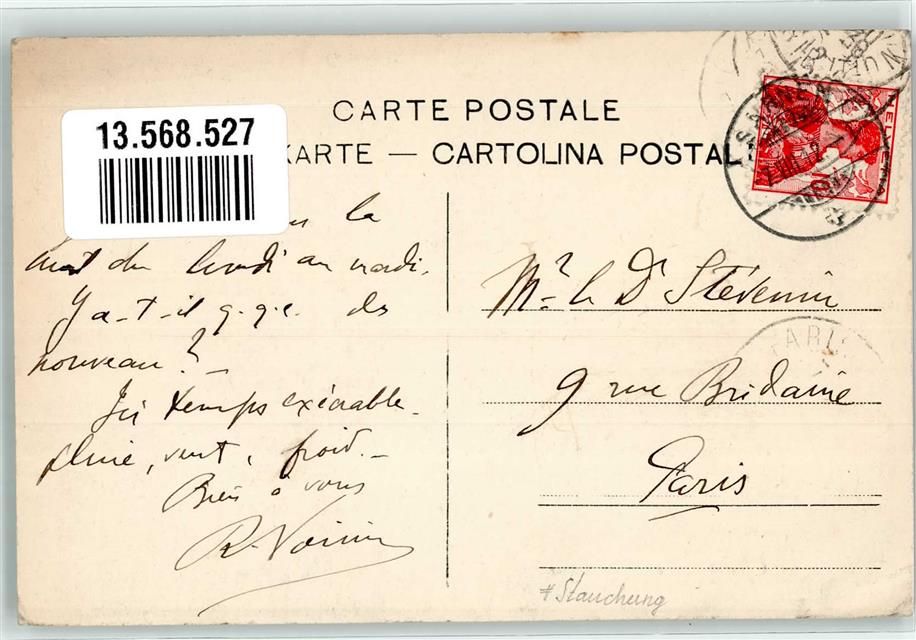 CARTE POSTALE
KARTE — CARTOLINA POSTAL
13.568.527
la
nuit du lundi au mardi.
Y a-t-il q.q.c. de
nouveau? —
Ici temps exécrable.
pluie, vent, froid. —
Bien à vous
R. Voisin
Mr. le Dr Stévenin
9 rue Bridaine
Paris
PARI
*Stauchung